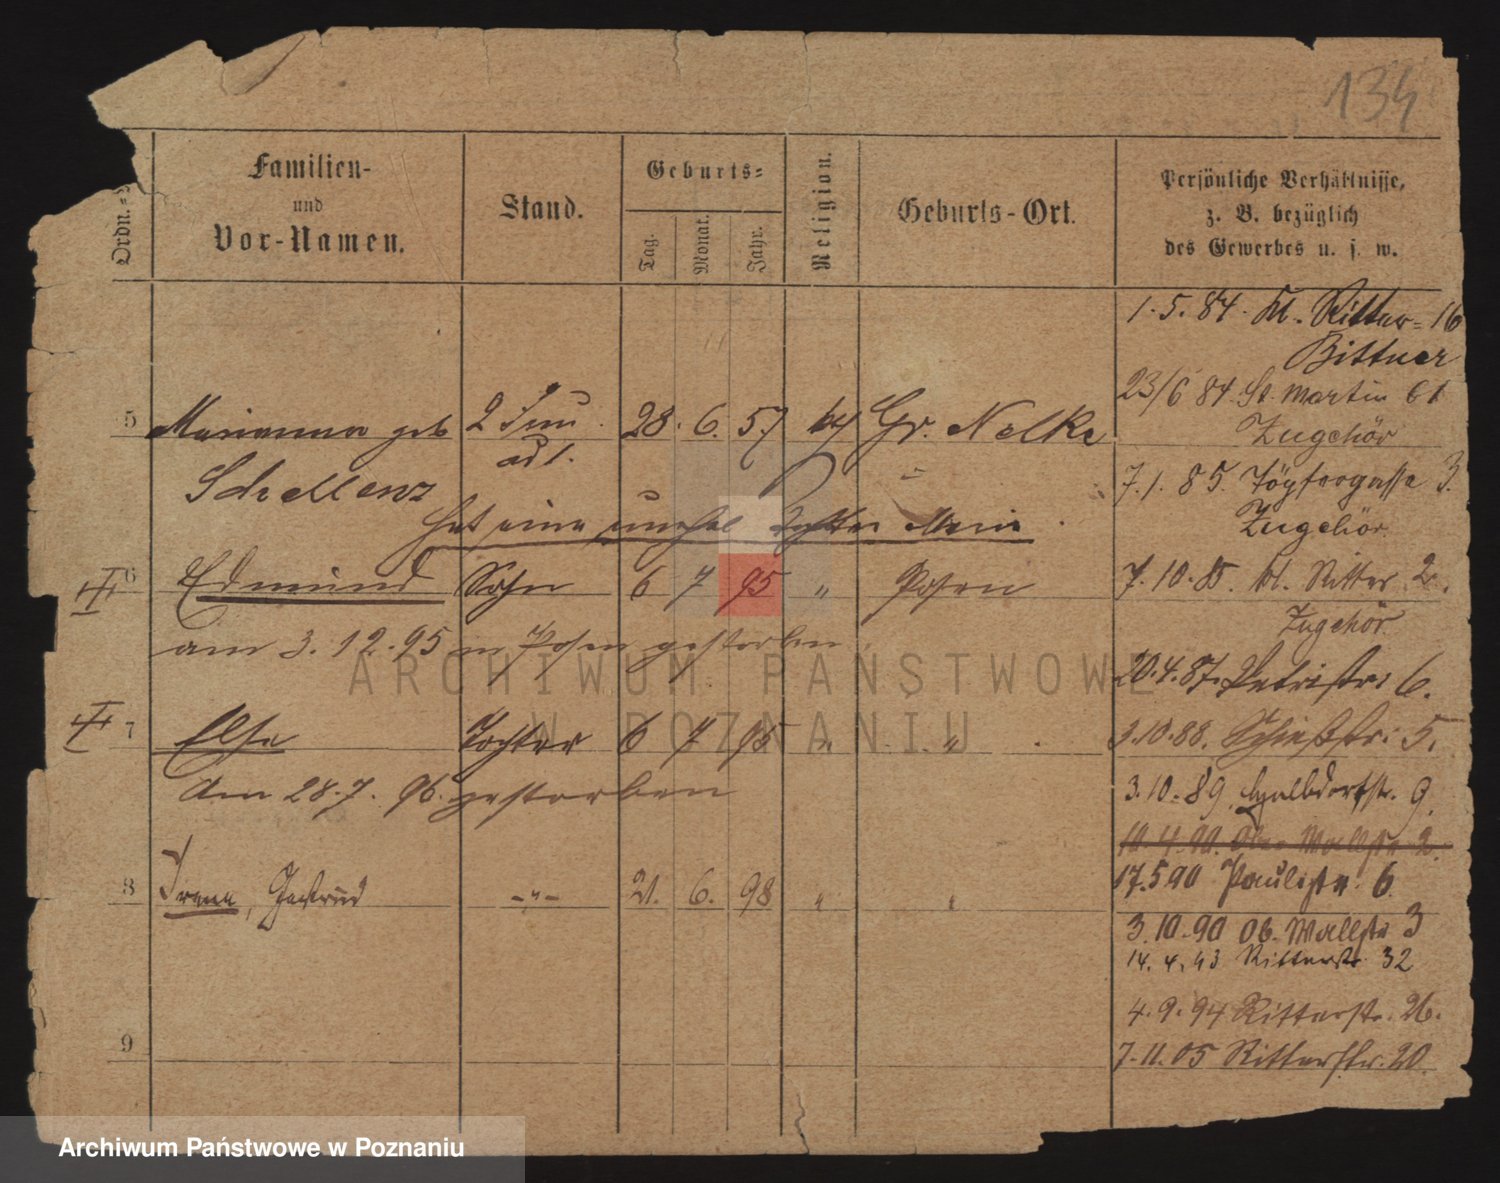 134
Ordn.=
Familien-
und
Vor-Namen.
Stand.
Geburts=
Tag.
Monat.
Jahr.
Religion.
Geburts-Ort.
Persönliche Verhältnisse,
z. B. bezüglich
des Gewerbes u. s. w.
1.5.84. Kl. Ritter= 16
Bittner
23/6 84 St. Martin 61
Zugehör
5 Marianna geb 2 Frau 28. 6. 57 Gr. Nelke
Schellenz
7.1.85. Töpfergasse 3.
Zugehör
hat eine unehel Tochter Marie
6 Edmund Sohn 6 7 95 " Posen
7.10.85. kl. Ritter 2.
Zugehör
am 3.12.95 in Posen gestorben
20.4.87. Petristr: 6.
7 Else Tochter 6 7 95 " "
3.10.88. Schießstr: 5.
Am 28.7.96. gestorben
3.10.89. Halbdorfstr. 9.
10.4.90. Ober Wallstr 2.
17.5 90 Paulistr. 6.
8 Irena, Gertrud -"- 21. 6. 98 " "
3.10.90 Ob. Wallstr 3
14.4.93 Ritterstr 32
4.9.94 Ritterstr. 26.
9
7.11.05 Ritterstr. 20.
ARCHIWUM PAŃSTWOWE
W POZNANIU
Archiwum Państwowe w Poznaniu